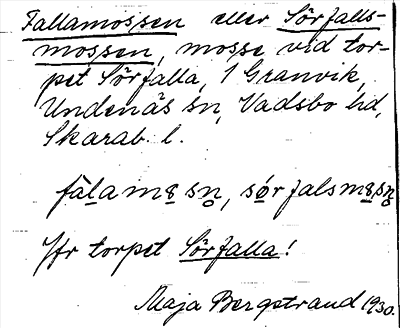 Fallamossen eller Sörfalls-
mossen, mosse vid tor-
pet Sörfalla, 1 Granvik,
Undenäs sn, Vadsbo hd,
Skarab. l.
Jfr torpet Sörfalla!
Maja Bergstrand 1930.